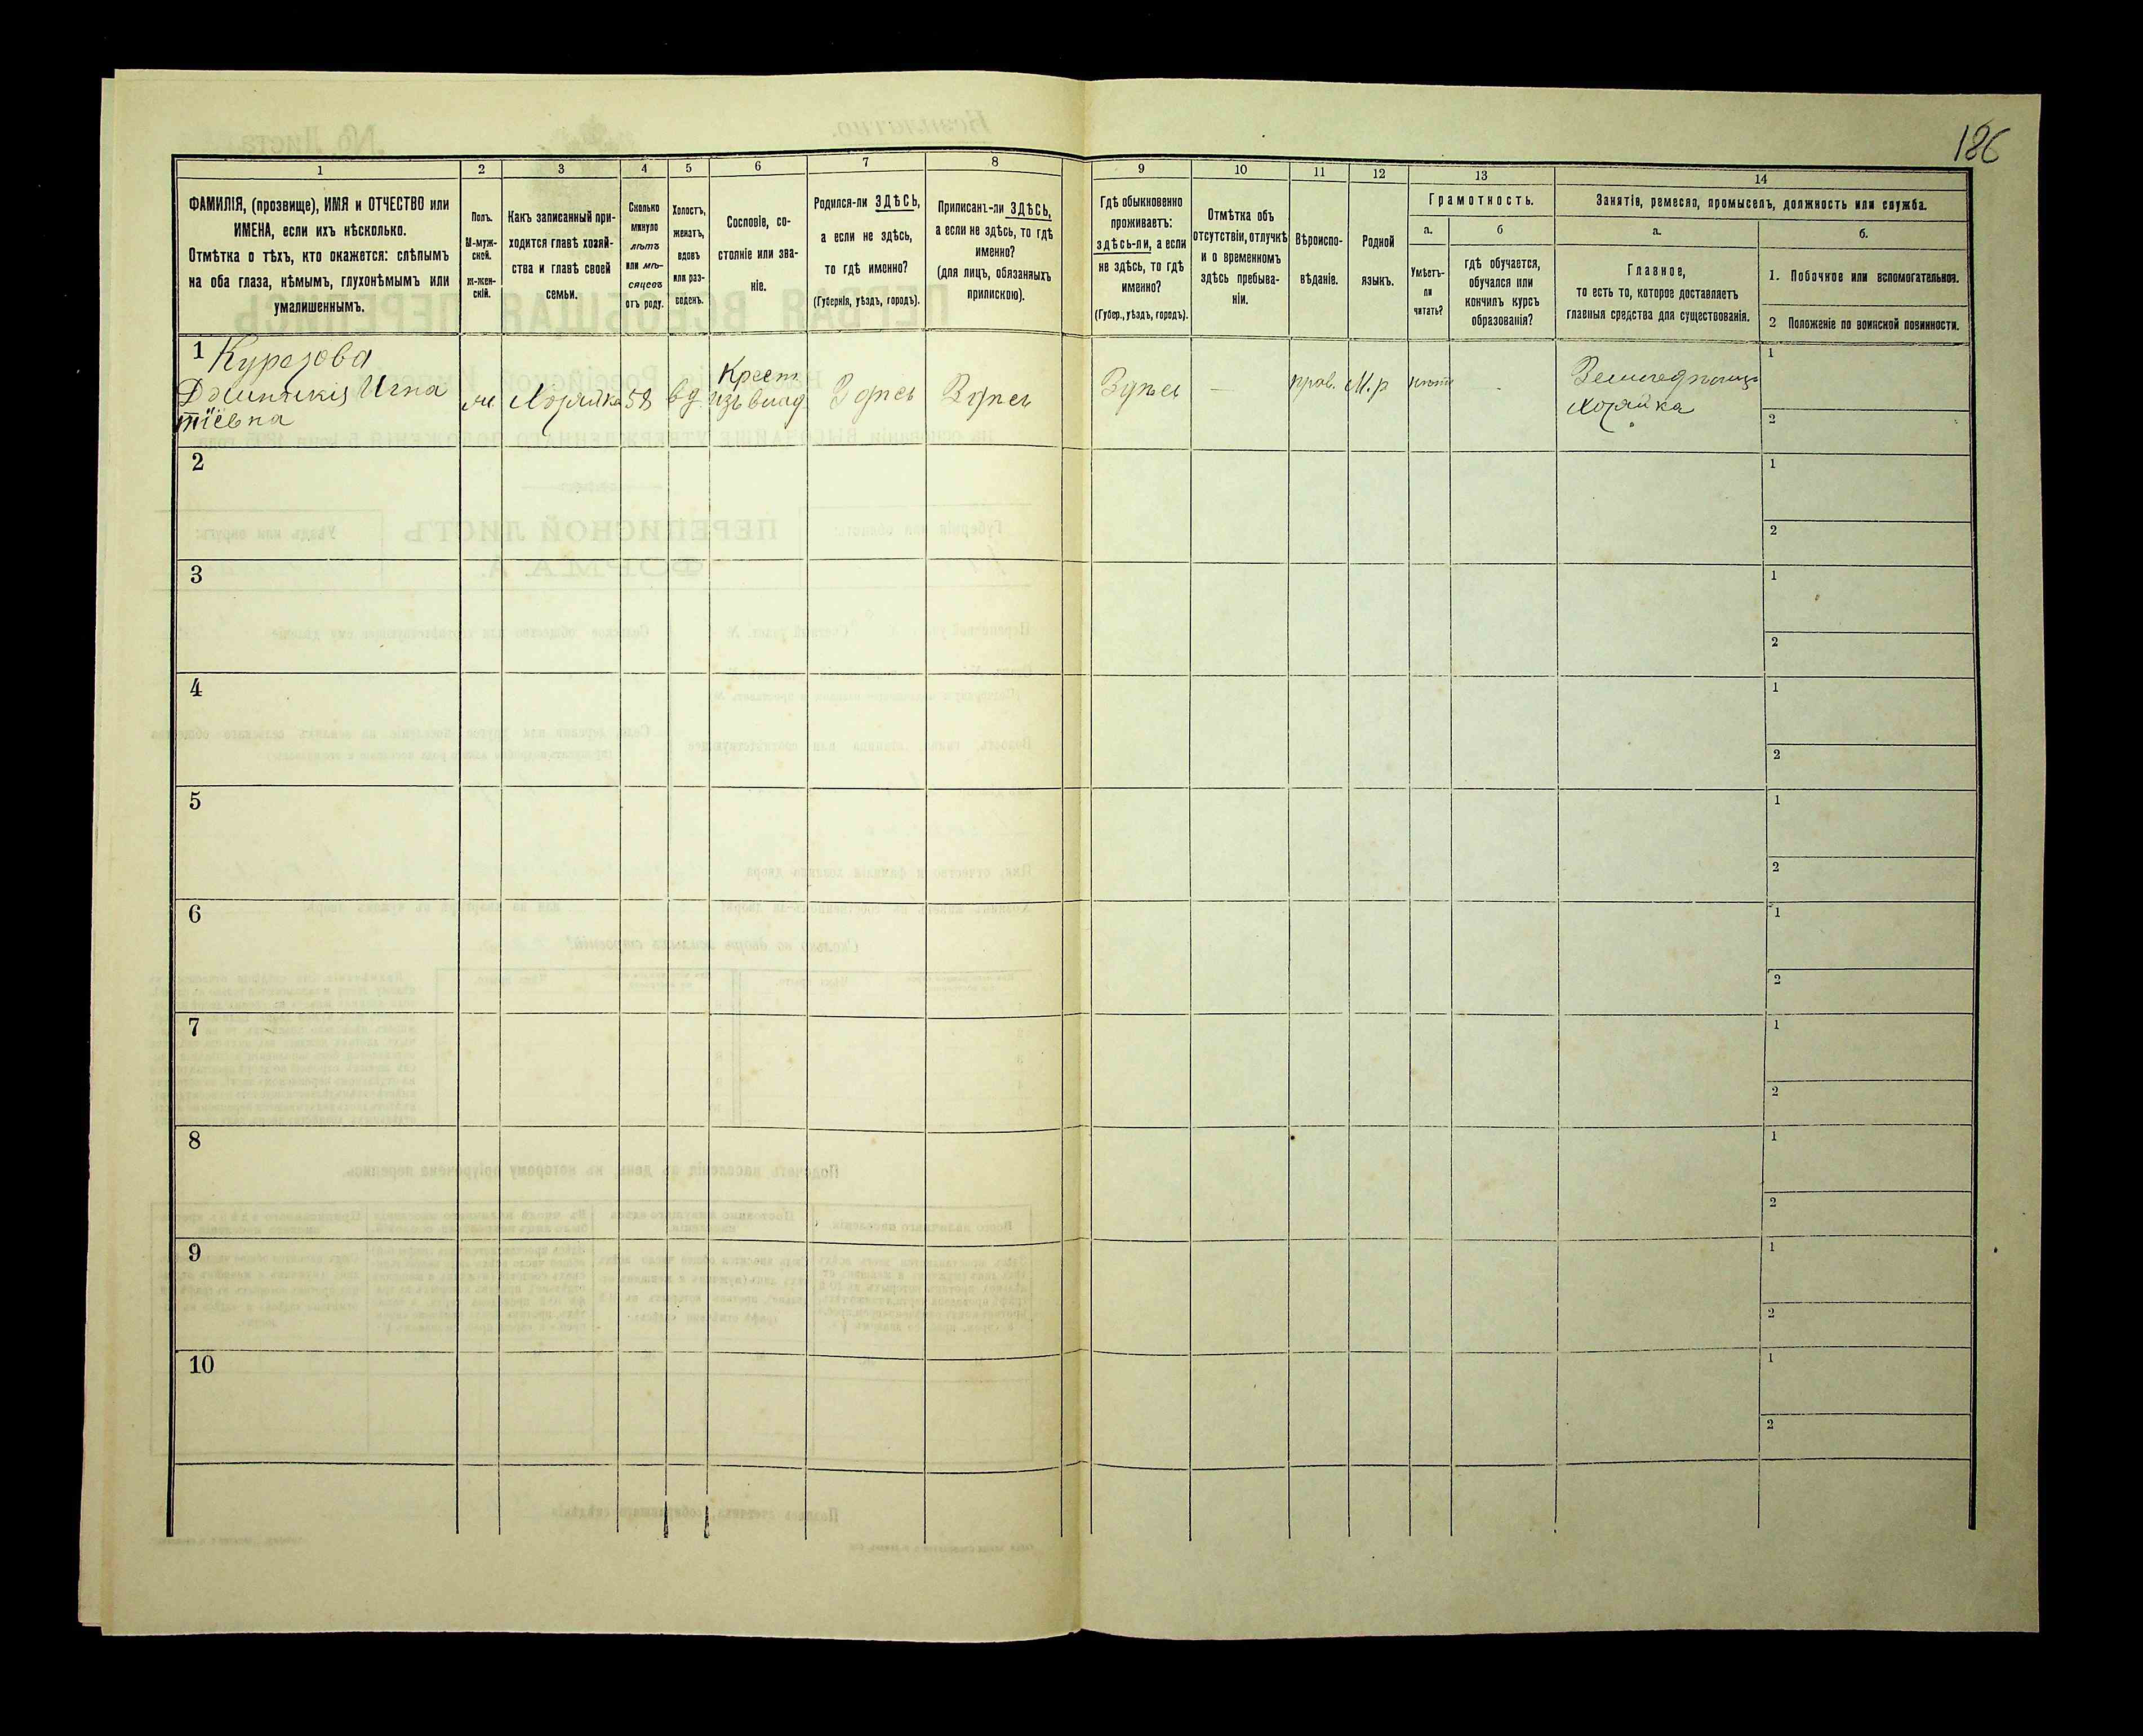 186
1
2
3
4
5
6
7
8
9
10
11
12
13
14
ФАМИЛІЯ, (прозвище), ИМЯ и ОТЧЕСТВО или
ИМЕНА, если ихъ нѣсколько.
Отмѣтка о тѣхъ, кто окажется: слѣпымъ
на оба глаза, нѣмымъ, глухонѣмымъ или
умалишеннымъ.
Полъ.
М-муж-
ской.
ж-жен-
скій.
Какъ записанный при-
ходится главѣ хозяй-
ства и главѣ своей
семьи.
Сколько
минуло
лѣтъ
или мѣ-
сяцевъ
отъ роду.
Холостъ,
женатъ,
вдовъ
или раз-
веденъ.
Сословіе, со-
стояніе или зва-
ніе.
Родился-ли ЗДѢСЬ,
а если не здѣсь,
то гдѣ именно?
(Губернія, уѣздъ, городъ).
Приписанъ-ли ЗДѢСЬ,
а если не здѣсь, то гдѣ
именно?
(для лицъ, обязанныхъ
припискою).
Гдѣ обыкновенно
проживаетъ:
здѣсь-ли, а если
не здѣсь, то гдѣ
именно?
(Губер., уѣздъ, городъ).
Отмѣтка объ
отсутствіи, отлучкѣ
и о временномъ
здѣсь пребыва-
ніи.
Вѣроиспо-
вѣданіе.
Родной
языкъ.
Грамотность.
а.
Умѣетъ-
ли
читать?
б
гдѣ обучается,
обучался или
кончилъ курсъ
образованія?
Занятія, ремесло, промыселъ, должность или служба.
а.
Главное,
то есть то, которое доставляетъ
главныя средства для существованія.
б.
1. Побочное или вспомогательное.
2 Положеніе по воинской повинности.
1
Игна
тіевна
Хозяйка
58
вд
Крест.
изъ влад
Здѣсь
Здѣсь
Здѣсь
—
прав.
М.р
нѣтъ
-
хозяйка
1
2
2
1
2
3
1
2
4
1
2
5
1
2
6
1
2
7
1
2
8
1
2
9
1
2
10
1
2